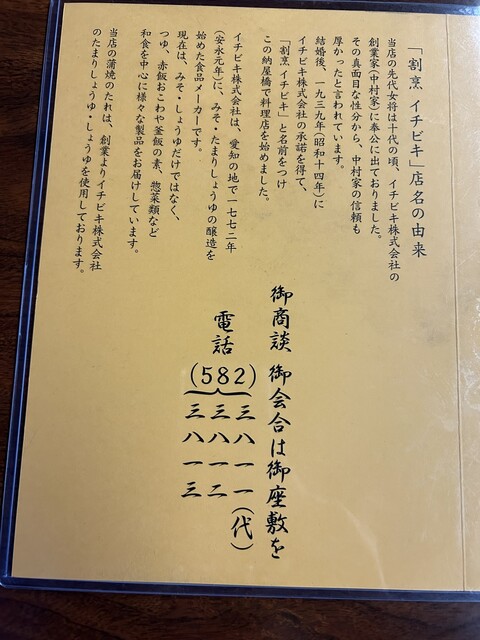 「割烹 イチビキ」店名の由来
当店の先代女将は十代の頃、イチビキ株式会社の
創業家（中村家）に奉公に出ておりました。
その真面目な性分から、中村家の信頼も
厚かったと言われています。
結婚後、一九三九年（昭和十四年）に
イチビキ株式会社の承諾を得て、
「割烹 イチビキ」と名前をつけ
この納屋橋で料理店を始めました。
イチビキ株式会社は、愛知の地で一七七二年
（安永元年）に、みそ・たまりしょうゆの醸造を
始めた食品メーカーです。
現在は、みそ・しょうゆだけではなく、
つゆ、赤飯おこわや釜飯の素、惣菜類など
和食を中心に様々な製品をお届けしています。
当店の蒲焼のたれは、創業よりイチビキ株式会社
のたまりしょうゆ・しょうゆを使用しております。
御商談 御会合は御座敷を
電話
(582)
三八一一（代）
三八一二
三八一三